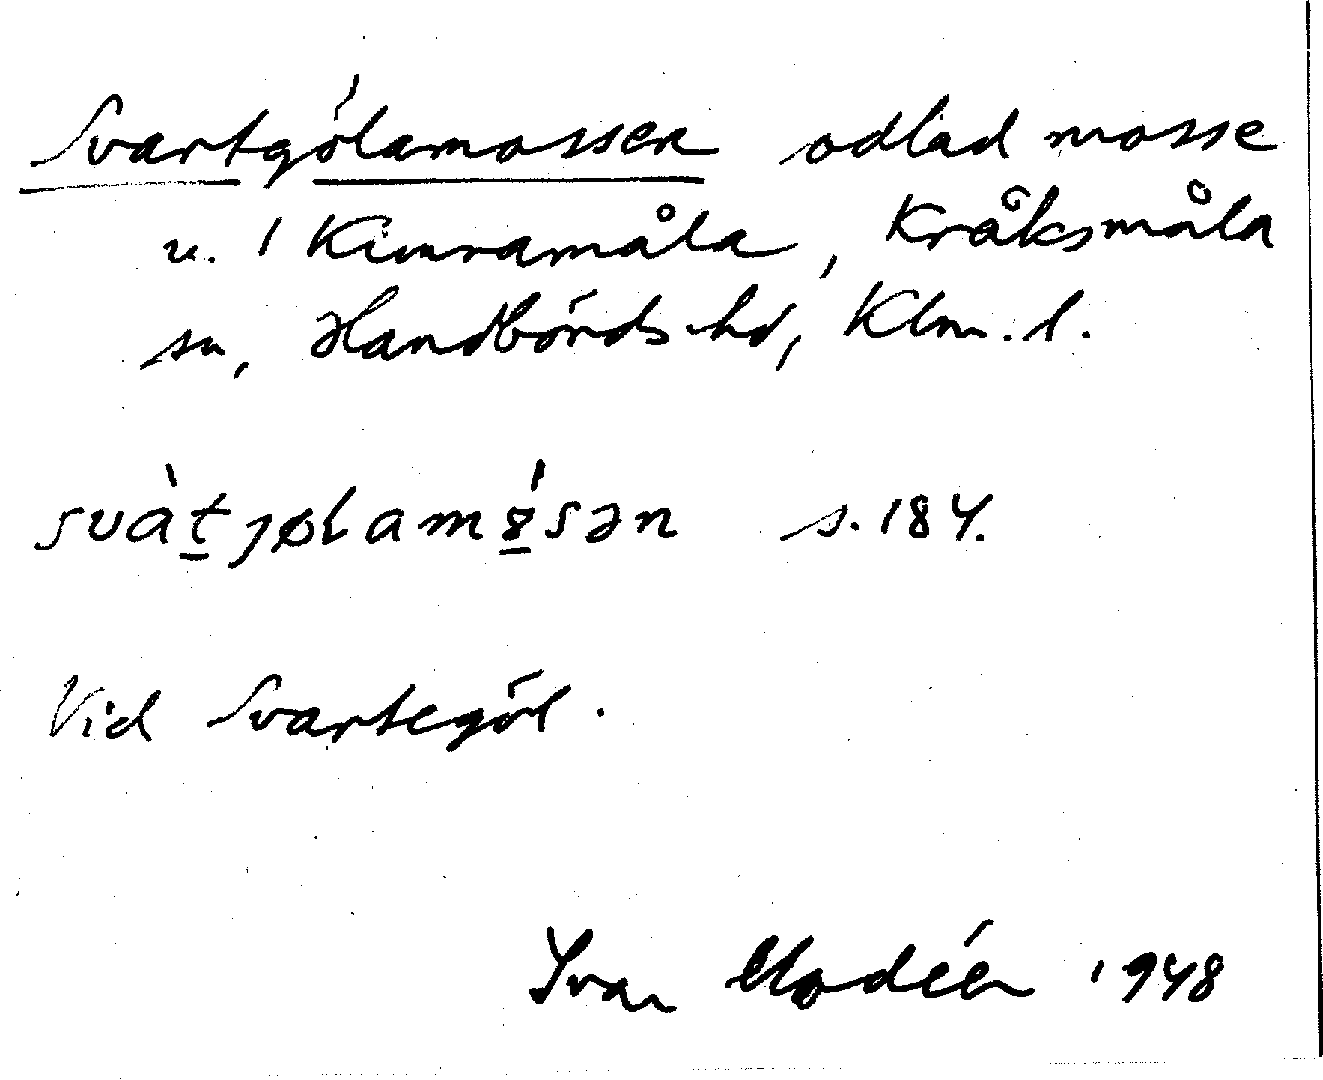 Svartgölamossen odlad mosse
u. 1 Kimramåla, Kråksmåla
sn, Handbörds hd, Klm. l.
svàt̲jølamö̲́sən s. 184.
Vid Svartegöl.
Ivar Modéer 1948